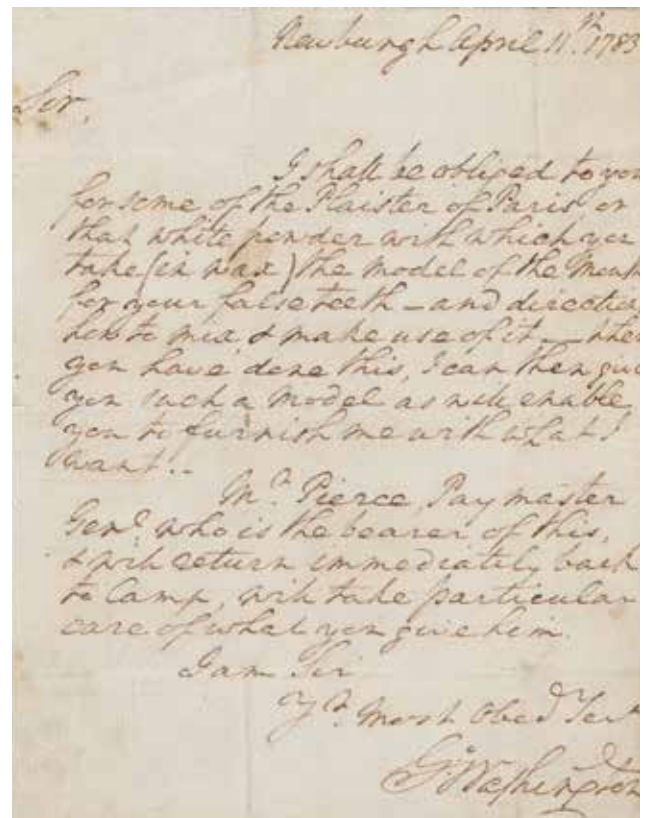 Newburgh April 11th. 1783
Sir,
I shall be obliged to you
for some of the Plaister of Paris, or
that white powder with which you
take (in wax) the model of the Mouth
for your false teeth – and direction
how to mix & make use of it – when
you have done this, I can then give
you such a model as will enable
you to furnish me with what I
want. –
Mr. Pierce, Paymaster
Genl. who is the bearer of this,
& will return immediately back
to Camp, will take particular
care of what you give him.
I am Sir
Yr. Most Obedt Servt
Go: Washington